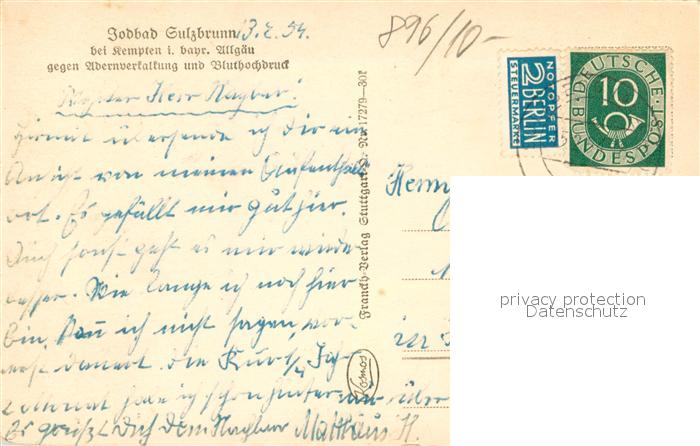 Jodbad Sulzbrunn 13.2.54.
bei Kempten i. bayr. Allgäu
gegen Adernverkalkung und Bluthochdruck
896/10-
NOTOPFER
2 BERLIN
STEUERMARKE
DEUTSCHE BUNDESPOST
10
Herr Nachbar!
Hiermit übersende ich Dir ein
An ist von meinem Aufenthalts
ort. Es gefällt mir gut hier.
Auch sonst geht es mir wieder
besser. Wie lange ich noch hier
bin, kann ich nicht sagen, vor-
erst dauert die Kur
habe ich schon hinter mir
Es grüßt Dich Dein Nachbar Matthäus H.
Franckh-Verlag Stuttgart-O. Nr. 17279-30t
Kosmos
Herrn
in
privacy protection
Datenschutz